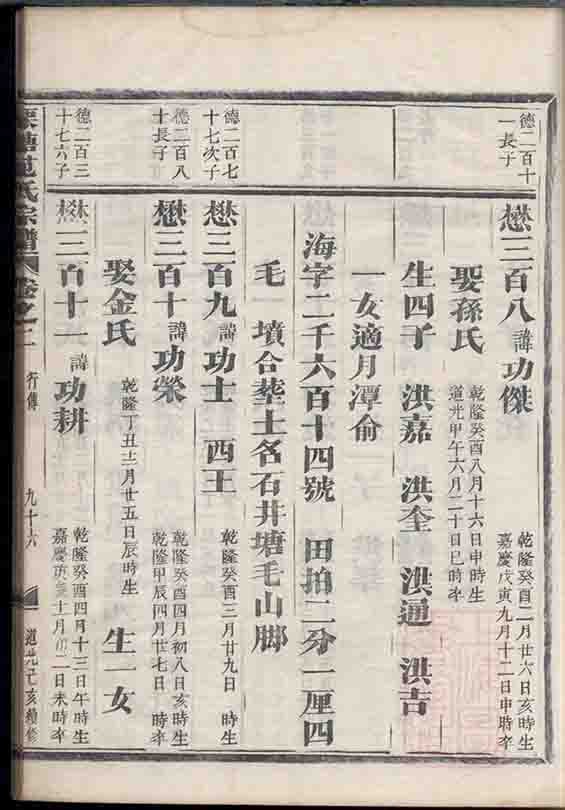 德二百十
一長子
懋三百八 諱功傑
乾隆癸酉二月廿六日亥時生
嘉慶戊寅九月十二日申時卒
娶孫氏
乾隆癸酉八月十六日申時生
道光甲午六月二十日巳時卒
生四子 洪嘉 洪奎 洪通 洪吉
一女適月潭俞
海字二千六百十四號 田拍二分一厘四
毛 墳合塟土名石井塘毛山脚
德二百七
十七次子
懋三百九 諱功士 西王
乾隆癸酉三月廿九日 時生
德二百八
十長子
懋三百十 諱功榮
乾隆癸酉四月初八日亥時生
乾隆甲辰四月廿七日 時卒
娶金氏
乾隆丁丑十二月廿五日辰時生
生一女
德二百三
十七六子
懋三百十一 諱功耕
乾隆癸酉四月十三日午時生
嘉慶庚辰十月 二日未時卒
范氏宗譜 卷之二 行傳 九十六 道光己亥續修